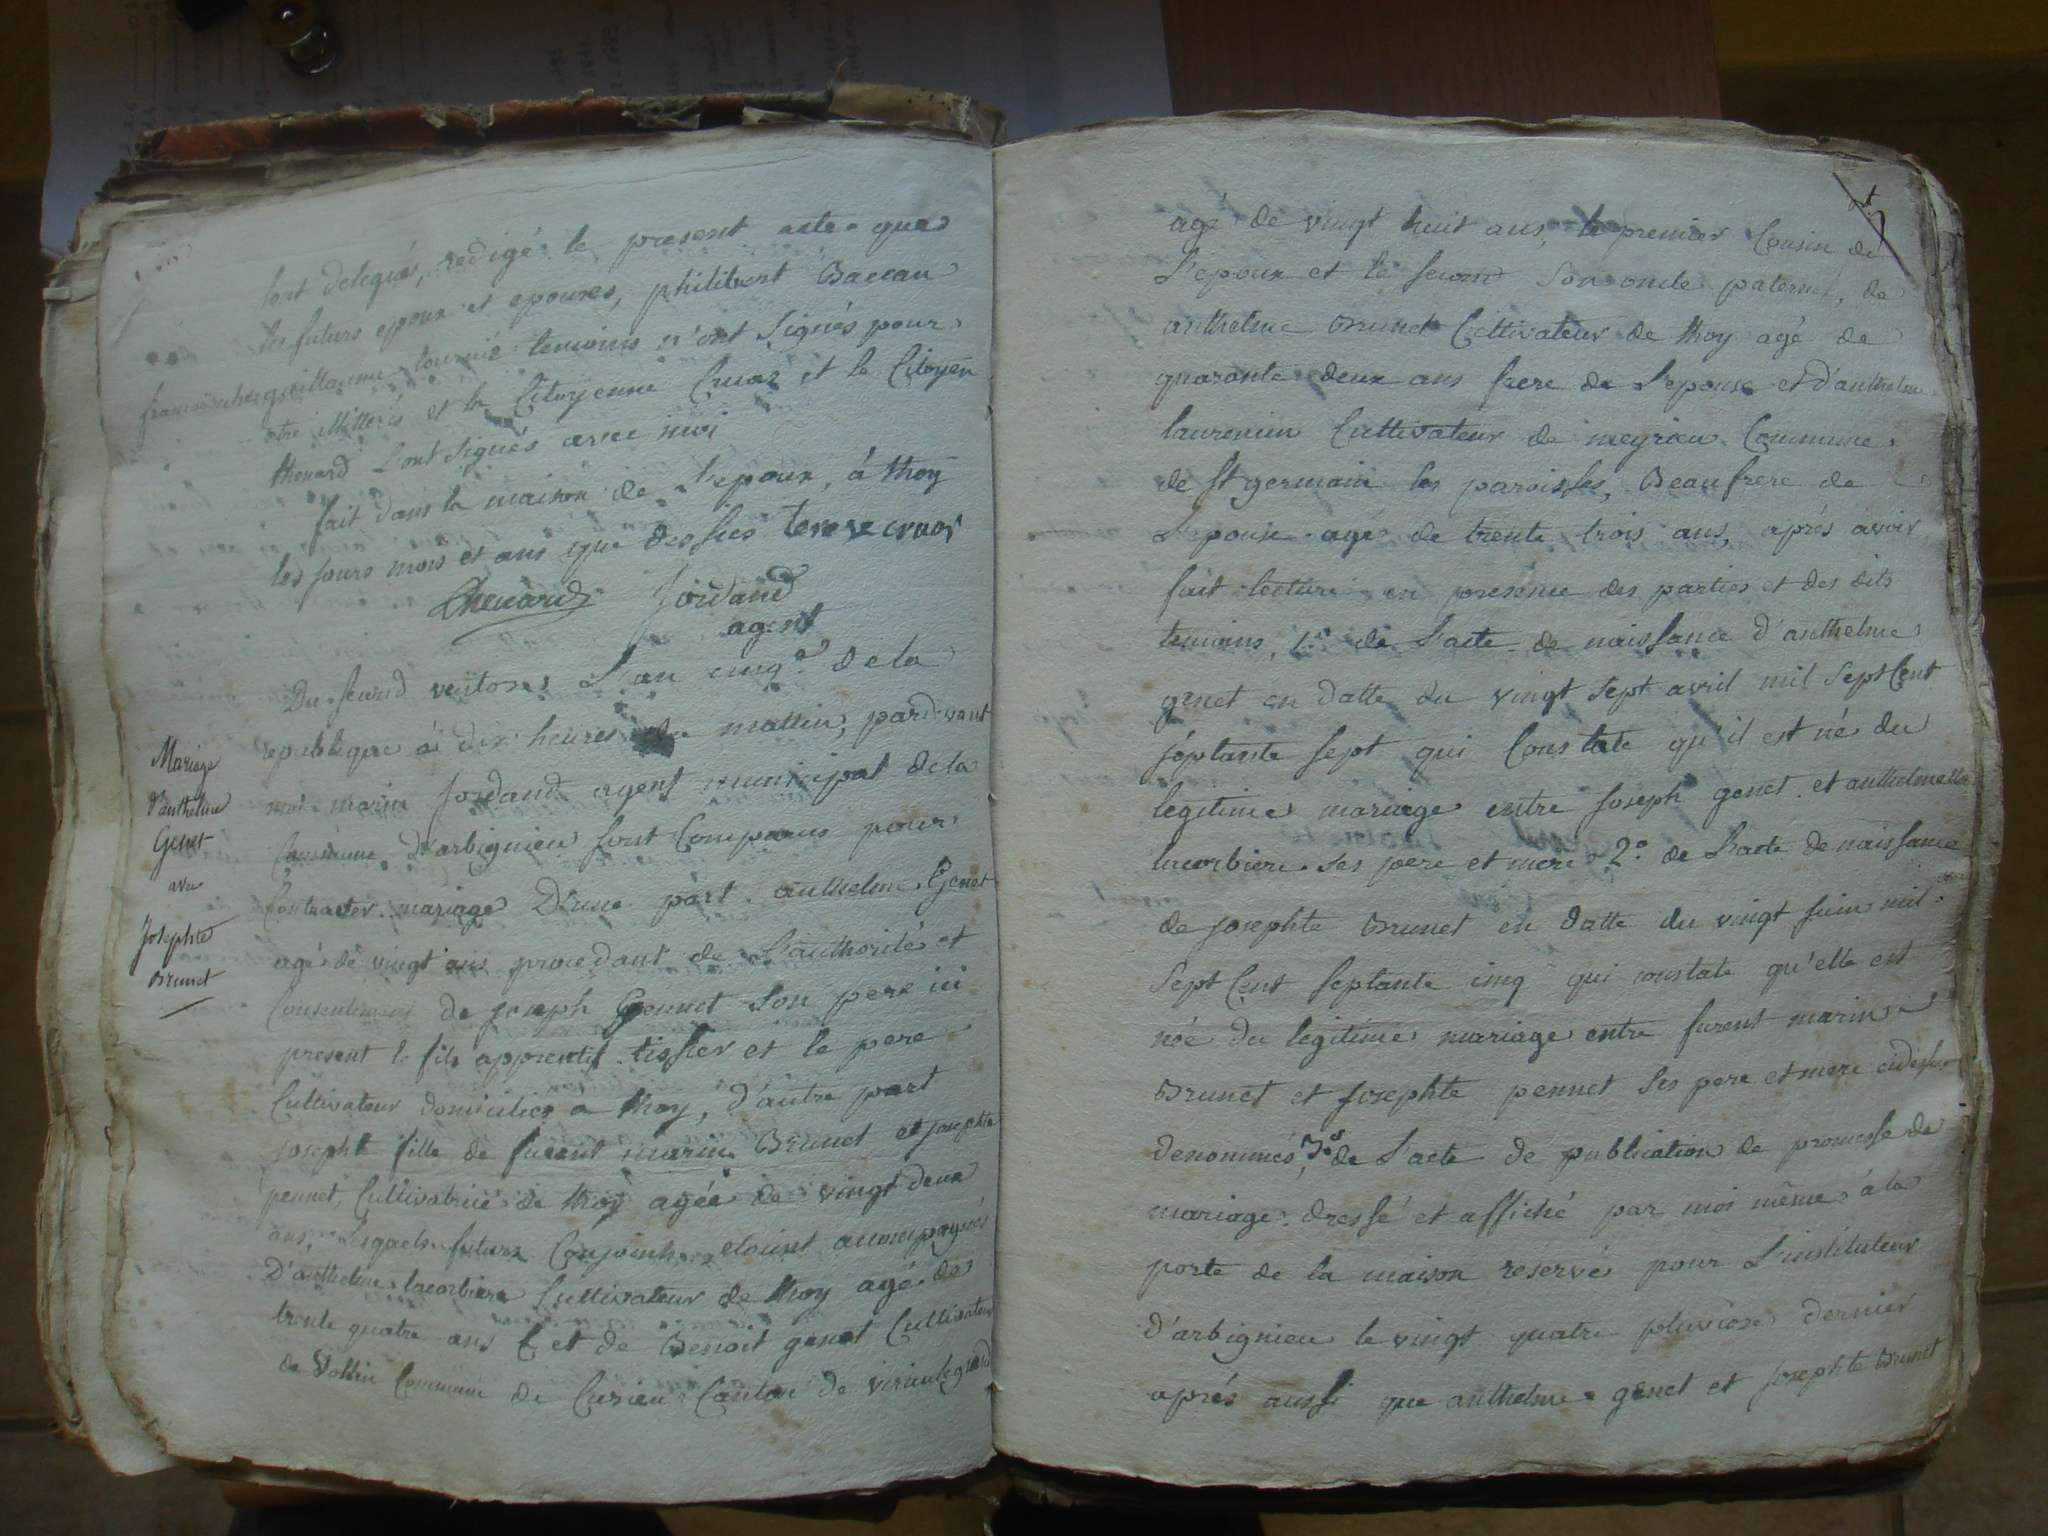 sont delegués, redigé le present acte que
les futurs epoux et epouses, philibert Baccau
guillaume tournié temoins n'ont signés pour
etre illiterés et la Citoyenne Cruaz et le Citoyen
thenard sont signés avec moi
fait dans la maison de l'epoux, à thoy
les jours mois et ans que dessus terese cruaz
thenard Jordand
agent
Du second ventose L'an cinq.e de la
republique à dix heures du mattin, pardevant
moi marin Jordand agent municipal de la
Commune d'arbignieu sont Comparus pour
Contracter mariage D'une part anthelme Genet
agé de vingt ans procedant de L'authorité et
Consentement de joseph Gennet son pere ici
present le fils apprentif tissier et le pere
Cultivateur domiciliés a thoy, d'autre part
josepht fille de furent marin Brunet et josephte
pennet, Cultivatrice de thoy agée de vingt deux
ans, Lesquels futurs Conjoints etoient accompagnés
D'anthelme lacorbiere Cultivateur de thoy agé de
trente quatre ans et de Benoit genet Cultivateur
de Vollin Commune de Cuzieu Canton de virieulegrand
Mariage
d'anthelme
Genet
avec
Josephte
Brunet
agé de vingt huit ans, le premier Cousin de
L'epoux et le second son oncle paternel, de
anthelme Brunet Cultivateur de thoy agé de
quarante deux ans frere de L'epouse et d'anthelme
laurencin Cultivateur de meyrieu Commune
de St germain les paroisses, Beaufrere de
L'epouse agé de trente trois ans, aprés avoir
fait lecture en presence des parties et des dits
temoins, 1.o de L'acte de naissance d'anthelme
genet en datte du vingt sept avril mil sept Cent
septante sept qui Constate qu'il est né du
legitime mariage entre joseph genet et anthelme
lacorbiere ses pere et mere 2.o de L'acte de naissance
de josephte Brunet en datte du vingt juin mil
sept Cent septante cinq qui constate qu'elle est
née du legitime mariage entre furent marin
Brunet et josephte pennet ses pere et mere cidessus
denommés, 3.o de L'acte de publication de promesse de
mariage dressé et affiché par moi même à la
porte de la maison reservé pour L'instituteur
d'arbignieu le vingt quatre pluviose dernier
aprés aussi que anthelme genet et josephte Brunet